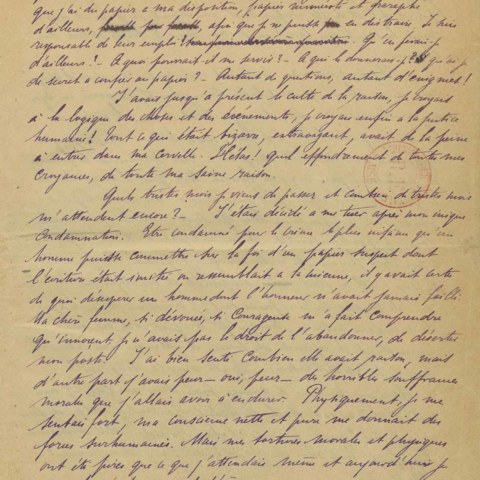 que j'ai du papier à ma disposition, papier numéroté et paraphé
d'ailleurs, afin que je ne puisse en distraire. Je suis
responsable de leur emploi! Qu'en ferais-je
d'ailleurs! - A quoi pourrait-il me servir? - A qui le donnerais-je? Qu'ai-je
de secret à confier au papier? - Autant de questions, autant d'énigmes!
J'avais jusqu'à présent le culte de la raison, je croyais
à la logique des choses et des événements, je croyais enfin à la justice
humaine! Tout ce qui était bizarre, extravagant, avait de la peine
à entrer dans ma cervelle. Hélas! quel effondrement de toutes mes
croyances, de toute ma saine raison.
Quels tristes mois je viens de passer et combien de tristes mois
m'attendent encore? - J'étais décidé à me tuer après mon inique
condamnation. Être condamné pour le crime le plus infâme qu'un
homme puisse commettre sur la foi d'un papier suspect dont
l'écriture était imitée ou ressemblait à la mienne, il y avait certes
de quoi désespérer un homme dont l'honneur n'avait jamais failli.
Ma chère femme, si dévouée, si courageuse m'a fait comprendre
qu'innocent, je n'avais pas le droit de l'abandonner, de déserter
mon poste. J'ai bien senti combien elle avait raison, mais
d'autre part j'avais peur - oui, peur - des horribles souffrances
morales que j'allais avoir à endurer. Physiquement, je me
sentais fort, ma conscience nette et pure me donnait des
forces surhumaines. Mais mes tortures morales et physiques
ont été pires que ce que j'attendais même et aujourd'hui je